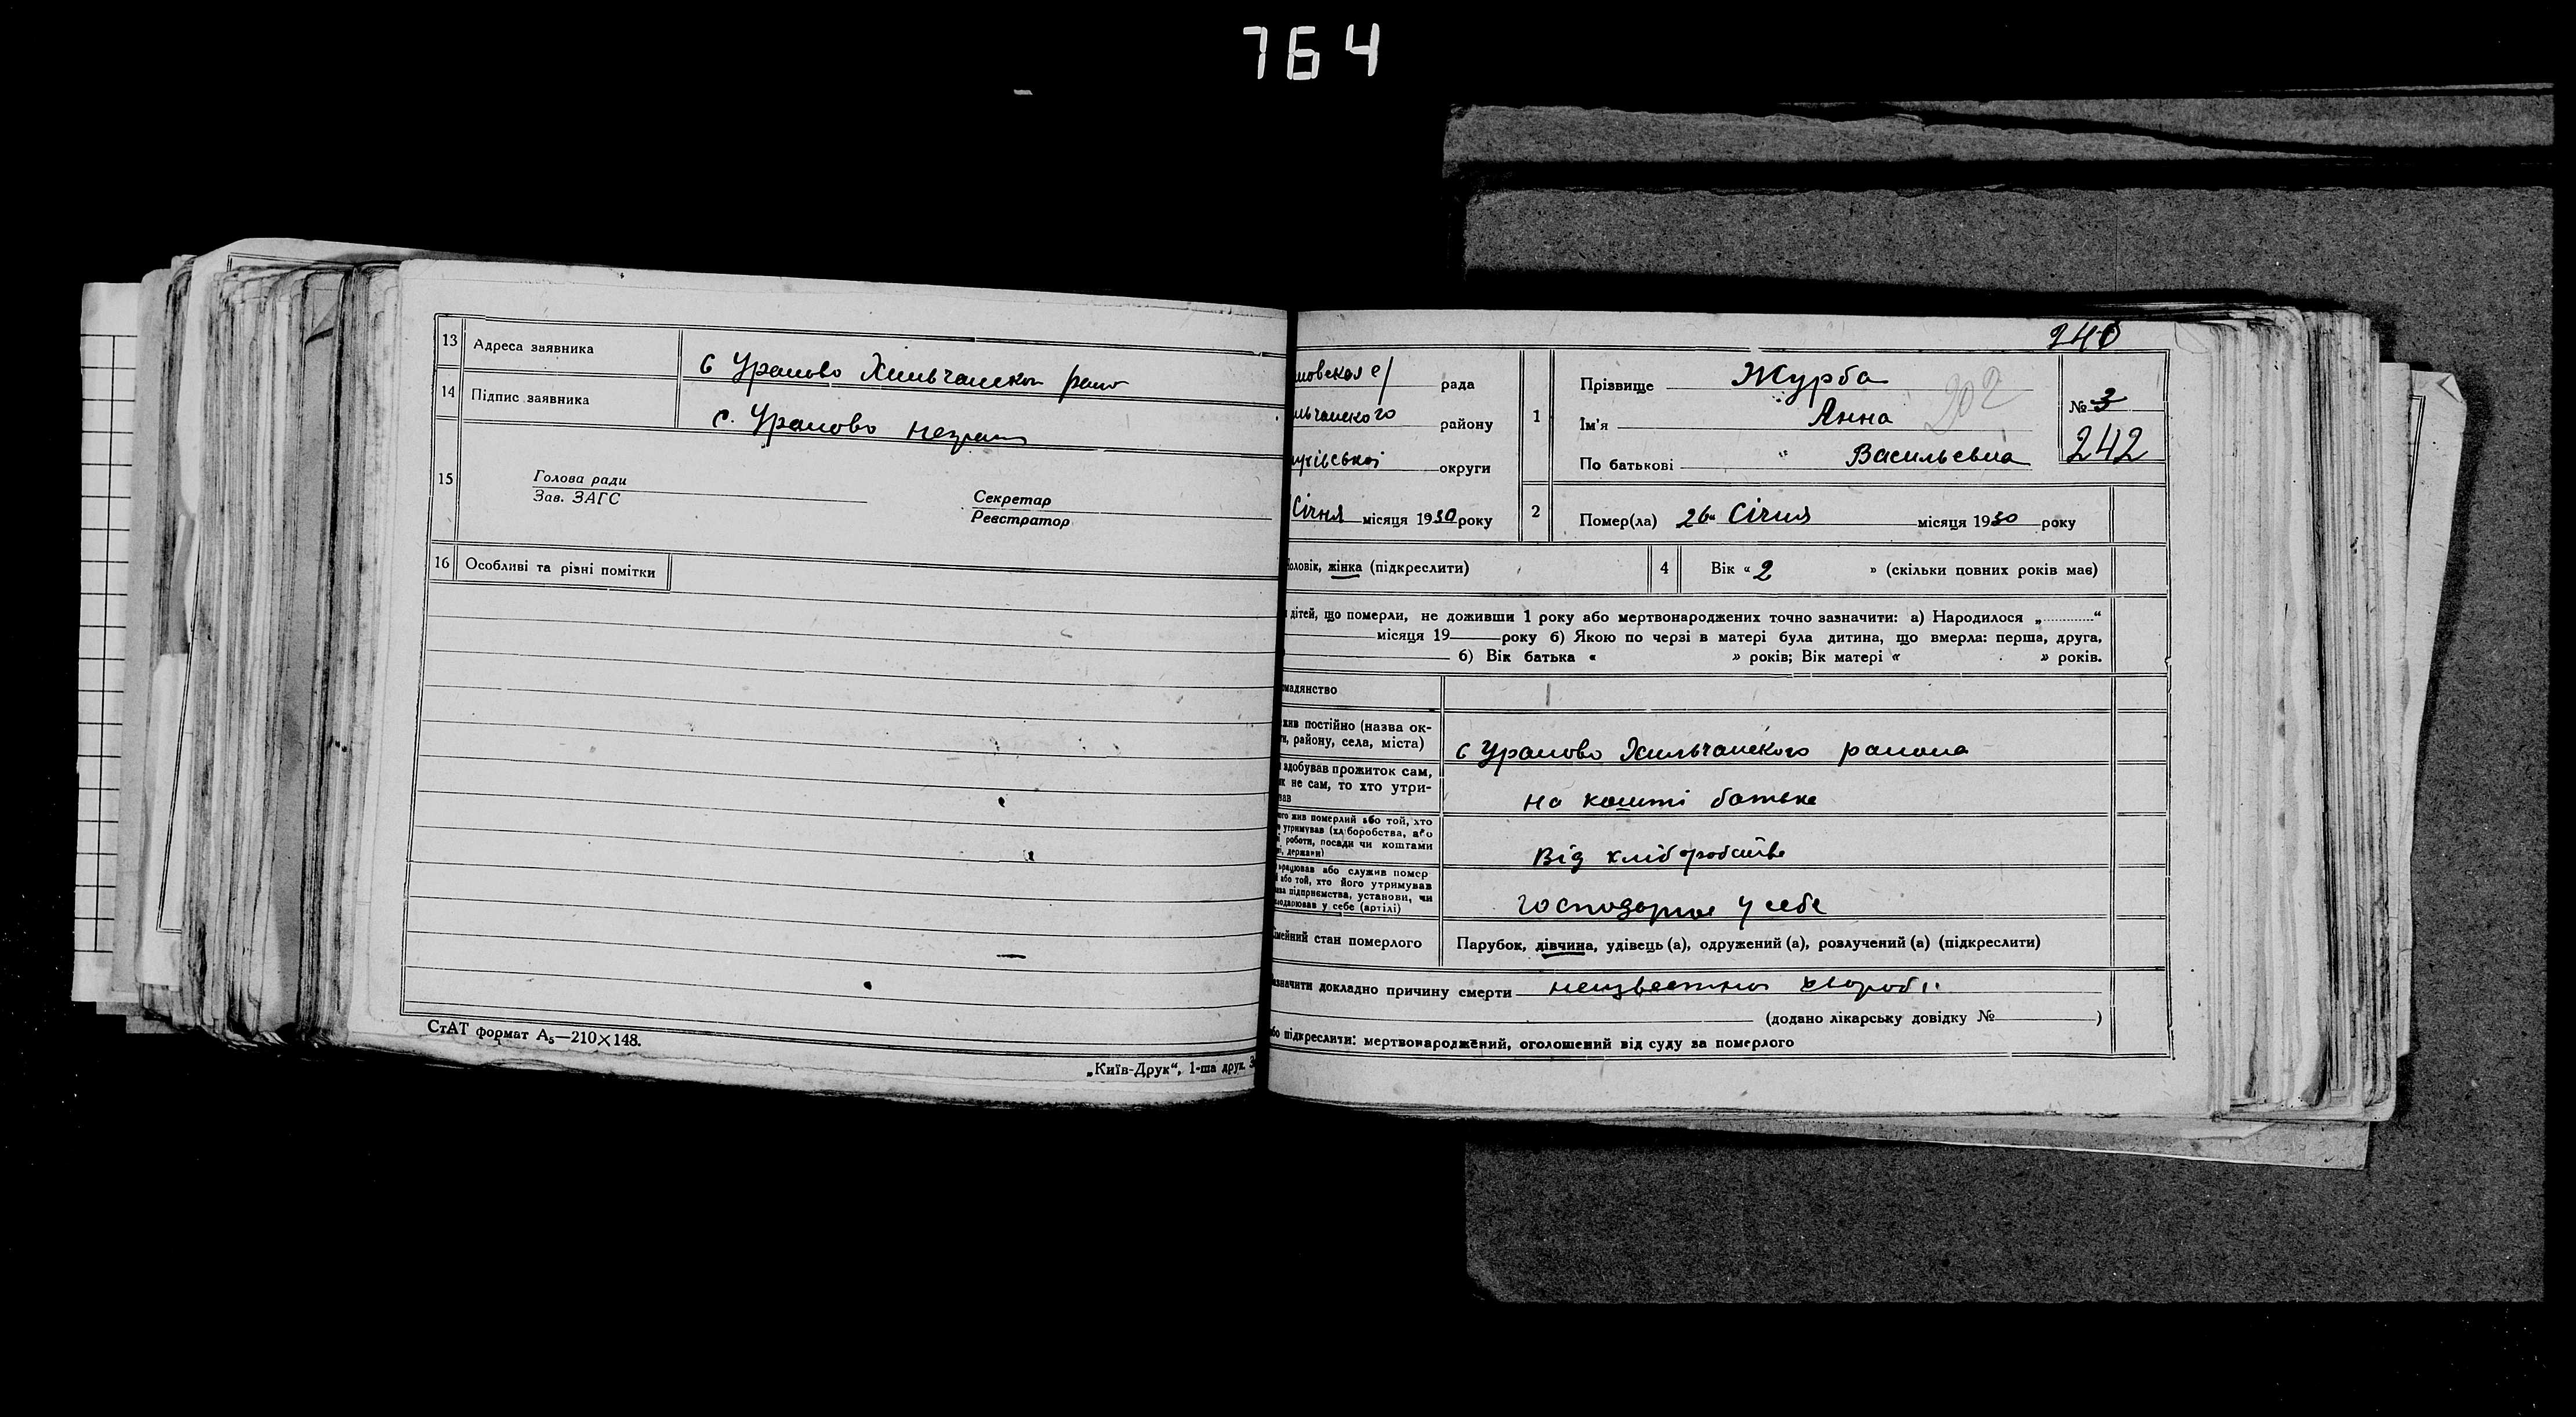 764
13 Адреса заявника с Уралово Хильчанскои раио
14 Підпис заявника с. Уралово
15 Голова ради
Зав. ЗАГС
Секретар
Реєстратор
16 Особливі та різні помітки
СтАТ формат А₅—210×148.
„Київ-Друк“, 1-ша друк. З
240
ловская с/ рада
льчанского району
округи
Січня місяця 1930 року
1 Прізвище Журба
Ім'я Анна
202
По батькові Васильевна
№ 3
242
2 Помер(ла) 26 Січня місяця 1930 року
оловік, жінка (підкреслити)
4 Вік « 2 » (скільки повних років має)
дітей, що померли, не доживши 1 року або мертвонароджених точно зазначити: а) Народилося „..........“
місяця 19 року б) Якою по черзі в матері була дитина, що вмерла: перша, друга,
б) Вік батька « » років; Вік матері « » років.
мадянство
жив постійно (назва ок-
ги, району, села, міста) с Уралово Хильчанского раиона
здобував прожиток сам,
як не сам, то хто утри-
вав на кошті батька
ого жив померлий або той, хто
утримував (хліборобства, або
роботи, посади чи коштами
держави) Від хліборобства
працював або служив помер
або той, хто його утримував
ва підприємства, установи, чи
подарював у себе (артілі) господарює у себе
імейний стан померлого Парубок, дівчина, удівець (а), одружений (а), розлучений (а) (підкреслити)
азначити докладно причину смерти неизвестна хвороби
(додано лікарську довідку № )
або підкреслити: мертвонароджений, оголошений від суду за померлого